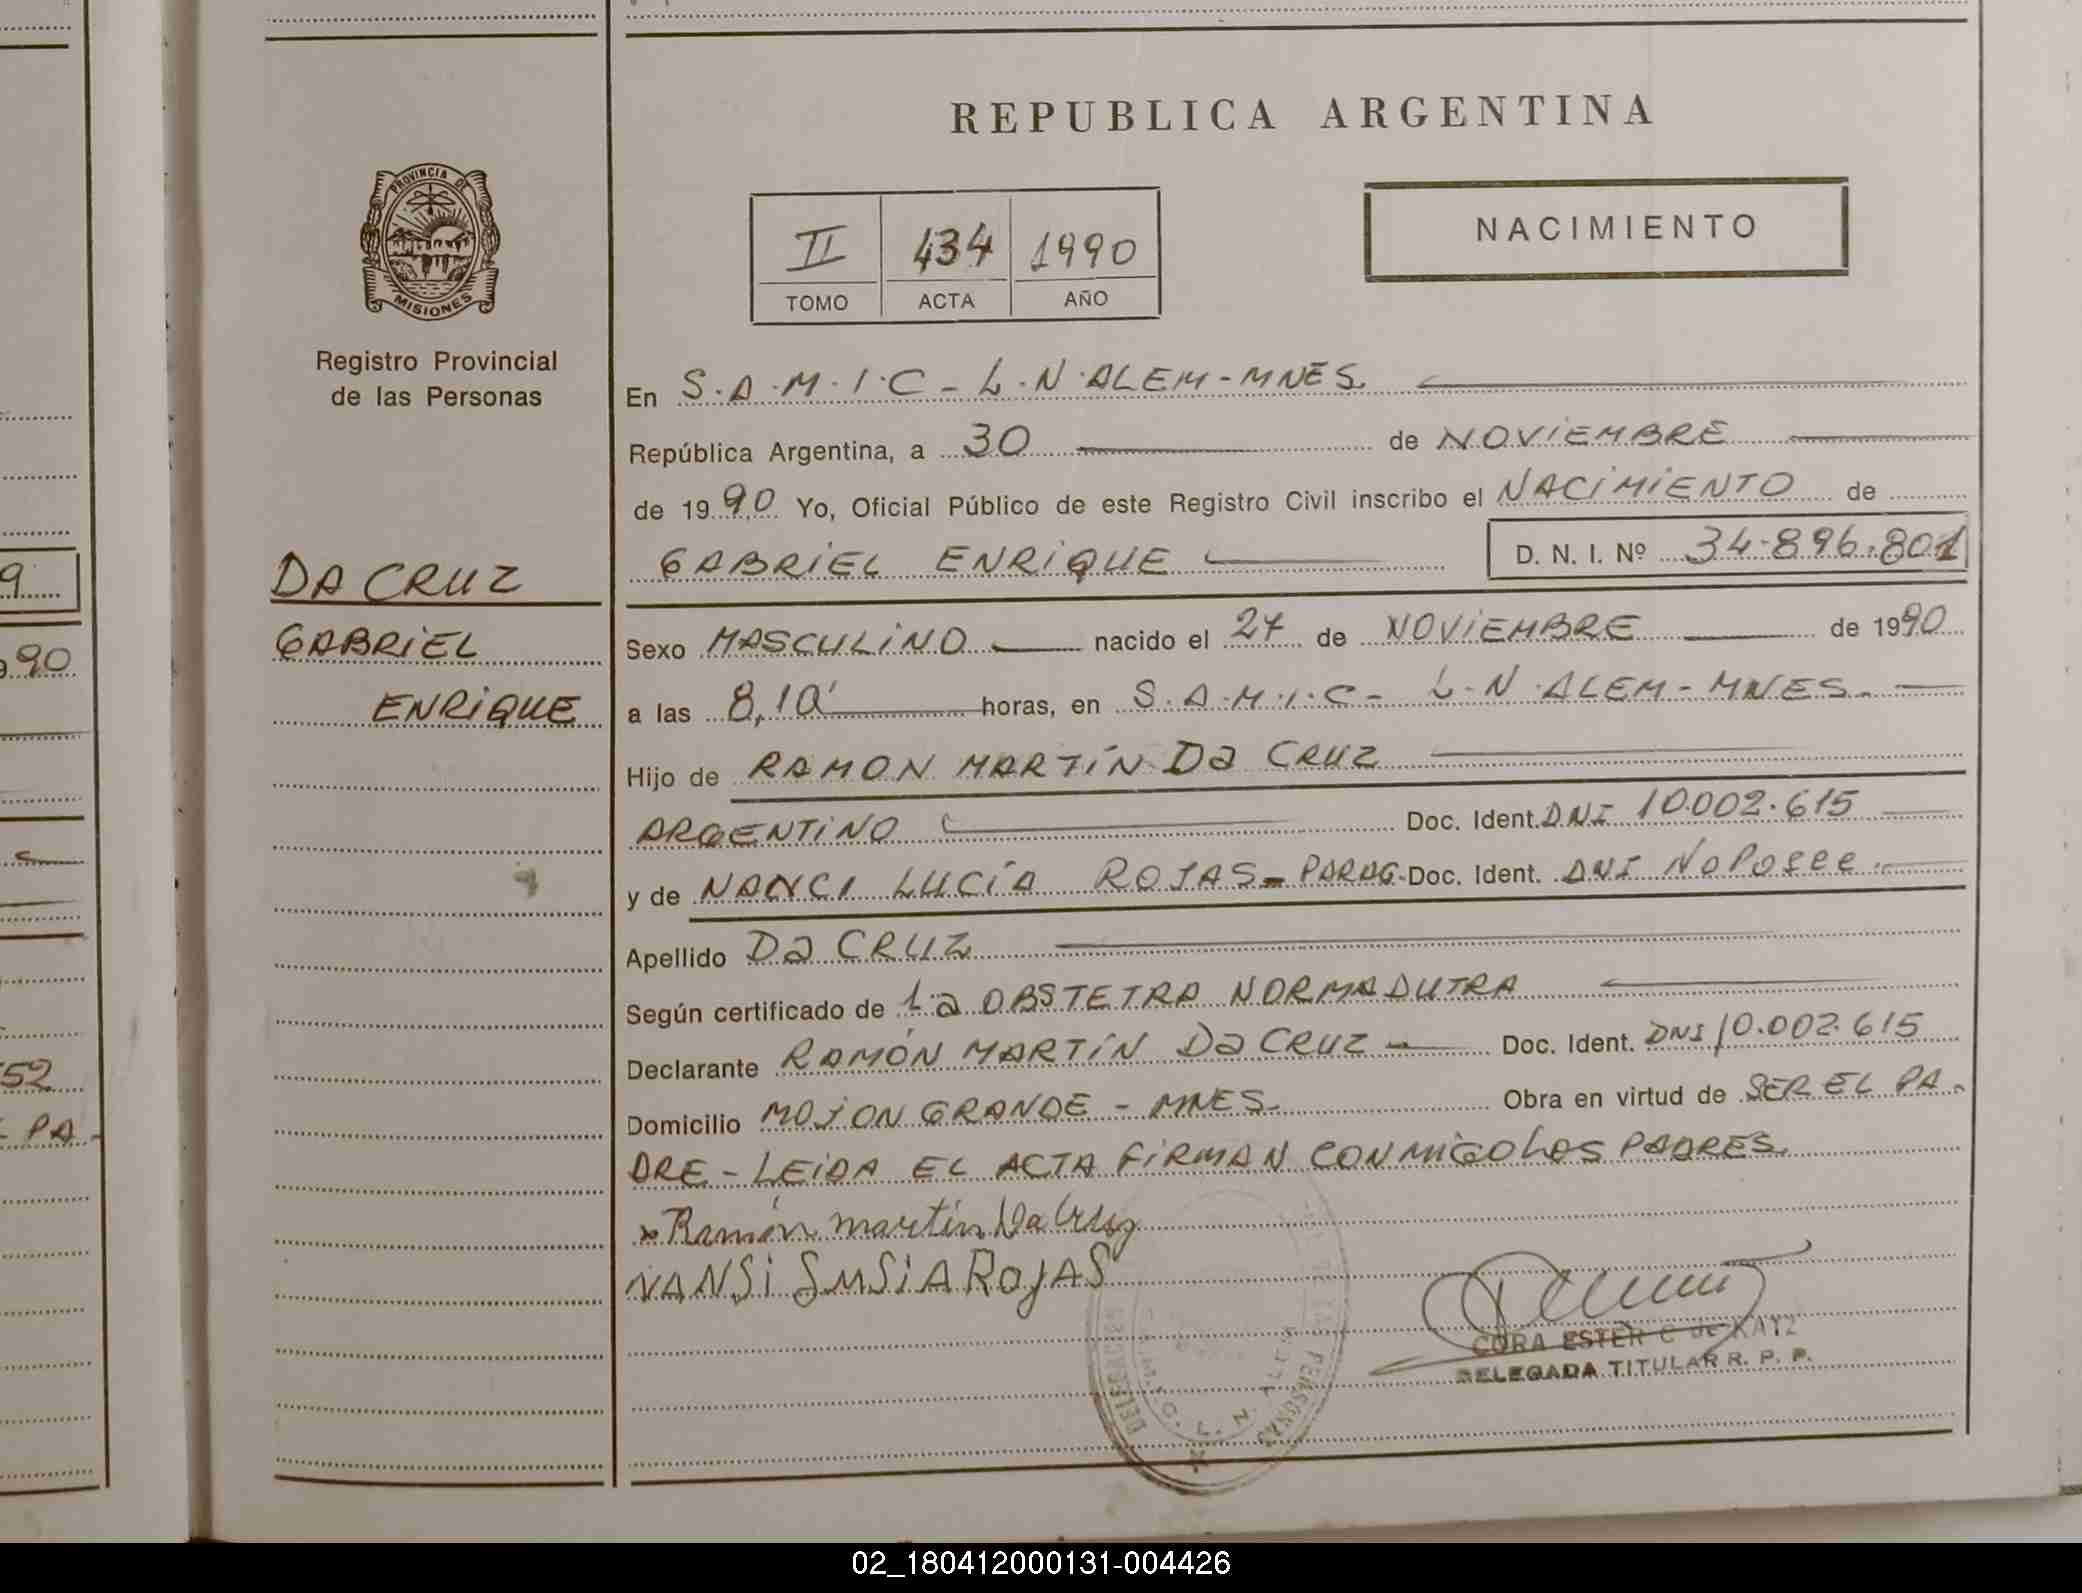 REPUBLICA ARGENTINA
PROVINCIA DE
MISIONES
Registro Provincial
de las Personas
II 434 1990
TOMO ACTA AÑO
NACIMIENTO
En S.A.M.I.C - L.N.ALEM-MNES.
República Argentina, a 30 de NOVIEMBRE
de 1990 Yo, Oficial Público de este Registro Civil inscribo el NACIMIENTO de
GABRIEL ENRIQUE D. N. I. Nº 34.896.801
DA CRUZ
GABRIEL
ENRIQUE
Sexo MASCULINO nacido el 27 de NOVIEMBRE de 1990
a las 8,10' horas, en S.A.M.I.C - L.N.ALEM-MNES.
Hijo de RAMON MARTÍN Da CRUZ
ARGENTINO Doc. Ident. DNI 10.002.615
y de NANCI LUCÍA ROJAS - PARAG. Doc. Ident. DNI No Posee
Apellido Da CRUZ
Según certificado de La OBSTETRA NORMA DUTRA
Declarante RAMÓN MARTÍN Da CRUZ Doc. Ident. DNI 10.002.615
Domicilio MOJON GRANDE - MNES. Obra en virtud de SER EL PA-
DRE - LEIDA EL ACTA FIRMAN CONMIGO LOS PADRES.
x Ramón martín Da Cruz
NANSi SUSiA ROjAS
CORA ESTER C de KATZ
DELEGADA TITULAR R. P. P.
9
90
52
PA-
02_180412000131-004426